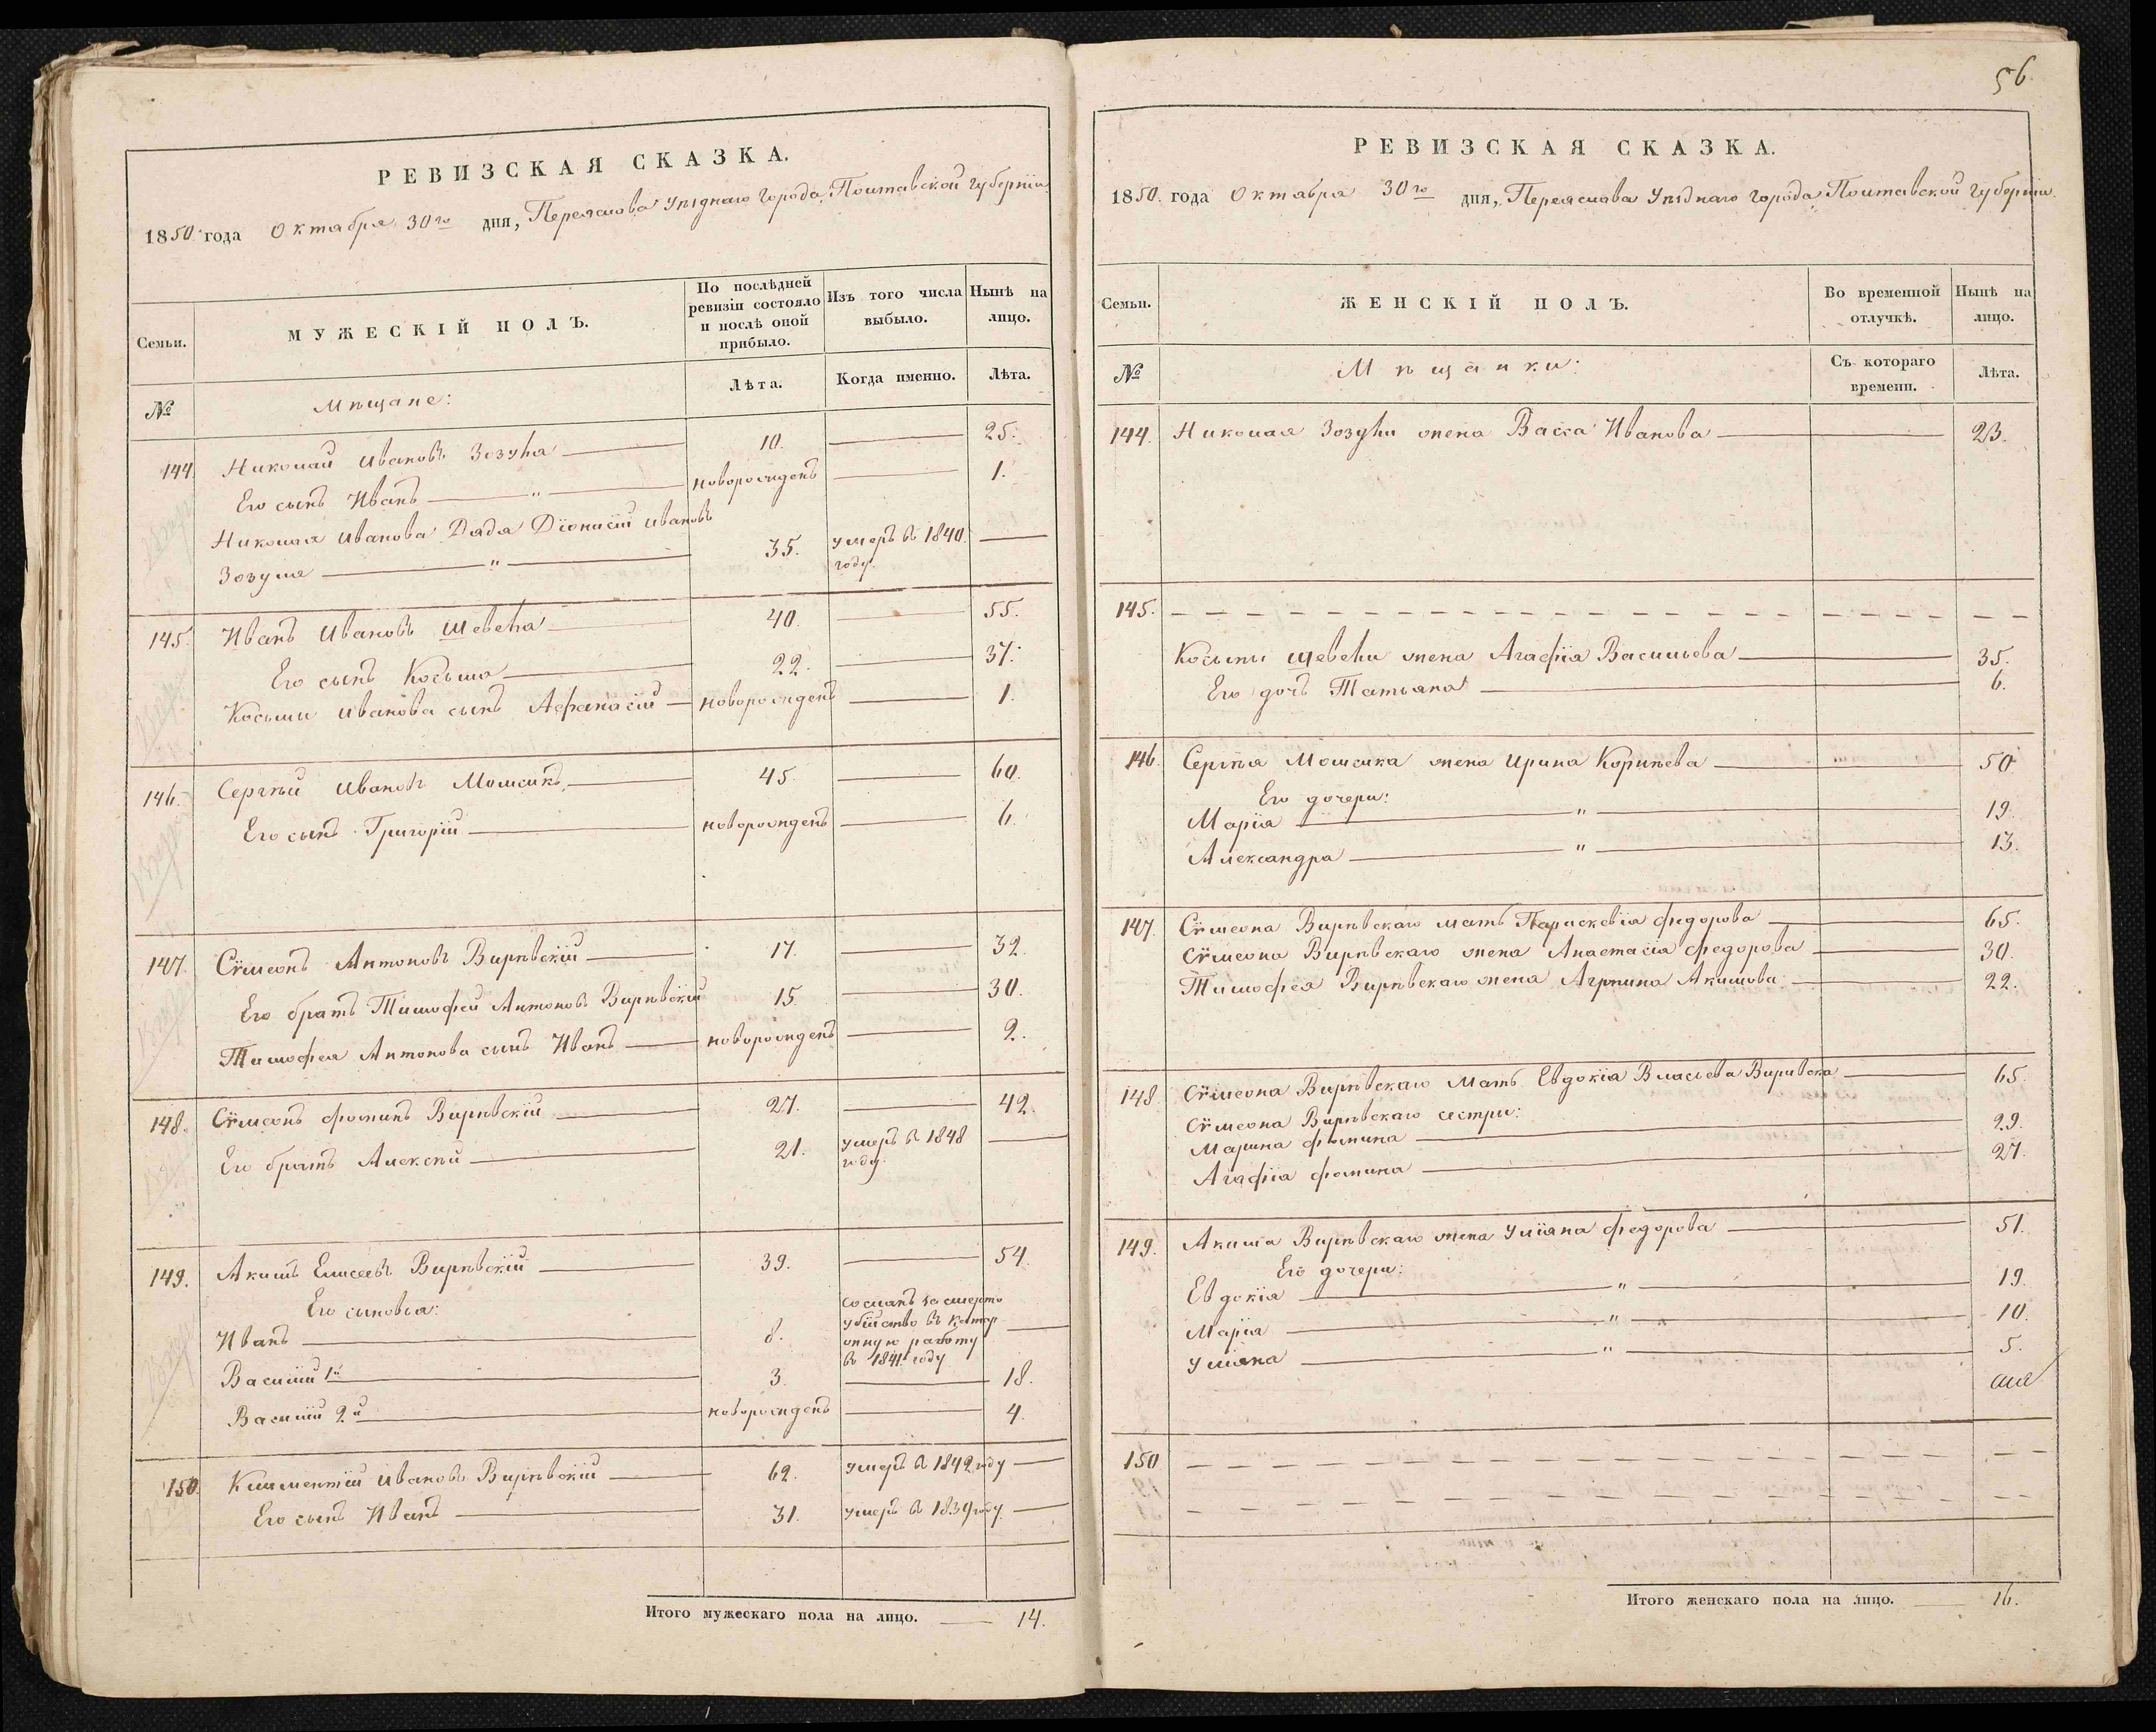 РЕВИЗСКАЯ СКАЗКА.
1850 года Октября 30го дня, Переяслова Уѣзднаго Города Полтавской Губерніи.
Семьи.
МУЖЕСКІЙ ПОЛЪ.
По послѣдней ревизіи состояло и послѣ оной прибыло.
Изъ того числа выбыло.
Нынѣ на лицо.
№
Мѣщане:
Лѣта.
Когда именно.
Лѣта.
144 Николай Ивановъ Зозуля 10. 25.
Его сынъ Иванъ " новорожденъ 1.
Николая Иванова Дядя Діонисій Ивановъ
Зозуля " 35. умеръ въ 1840 году.
145. Иванъ Ивановъ Шевеля 40. 55.
Его сынъ Косьма 22. 37.
Косьмы Иванова сынъ Афанасій новорожденъ 1.
146. Сергѣй Ивановъ Мошсикъ 45. 60.
Его сынъ Григорій новорожденъ 6.
147. Сѵмеонъ Антоновъ Вирѣвскій 17. 32.
Его братъ Тимофей Антоновъ Вирѣвскій 15. 30.
Тимофея Антонова сынъ Иванъ новорожденъ 2.
148. Сѵмеонъ Фоминъ Вирѣвскій 27. 42.
Его братъ Алексѣй 21. умеръ въ 1848 году.
149. Акимъ Елисеевъ Вирѣвскій 39. 54.
Его сыновья:
Иванъ 8. сосланъ за смерто убійство въ катор жную работу въ 1841 году
Василій 1й 3. 18.
Василій 2й новорожденъ 4.
150. Климентій Ивановъ Вирѣвскій 62. умеръ въ 1842 году
Его сынъ Иванъ 31. умеръ въ 1839 году.
Итого мужескаго пола на лицо. 14.
56.
РЕВИЗСКАЯ СКАЗКА.
1850. года Октября 30го дня, Переяслова Уѣзднаго Города Полтавской Губерніи.
Семьи.
ЖЕНСКІЙ ПОЛЪ.
Во временной отлучкѣ.
Нынѣ на лицо.
№
Мѣщанки:
Съ котораго времени.
Лѣта.
144. Николая Зозули жена Васса Иванова 23.
145.
Косьмы Шевели жена Агафія Васильева 35.
Его дочь Татьяна 6.
146. Сергѣя Мошсика жена Ирина Корнѣева " 50
Его дочери:
Марія " 19.
Александра " 13.
147. Сѵмеона Вирѣвскаго мать Параскевія Федорова 65.
Сѵмеона Вирѣвскаго жена Анастасія Федорова 30.
Тимофея Вирѣвскаго жена Агрпина Акимова 22.
148. Сѵмеона Вирѣвскаго мать Евдокія Власьева Виривска 65.
Сѵмеона Вирѣвскаго сестры:
Марина Фомина 29.
Агафія Фомина 27.
149. Акима Вирѣвскаго жена Уліяна Федорова 51.
Его дочери:
Евдокія " 19.
Марія " 10.
Уліяна " 5.
150
Итого женскаго пола на лицо. 16.